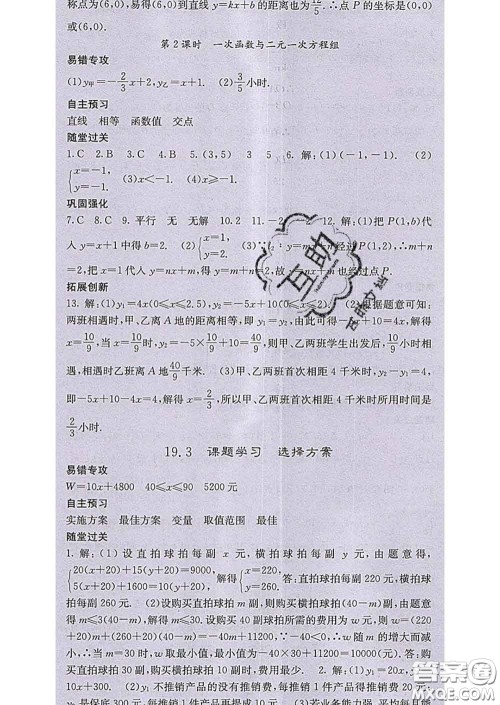 称点为(6,0),易得(6,0)到直线 y=kx+b 的距离也为12/5.∴点 P 的坐标是(0,0)
或(6,0).
第2课时 一次函数与二元一次方程组
易错专攻
(1)y甲=-2/3x+2,y乙=x+1. (2)3/5小时.
自主预习
直线 相等 函数值 交点
随堂过关
1.C 2.B 3.C 4.B 5.(3,5) 3 5 6.解:(1)(-1,-1). (2)
{x=-1, y=-1. (3)x<-1. (4)x≥-1.
巩固强化
7.C 8.C 9.平行 无 无解 10.2 11.-2 12.解:(1)把点 P(1,b)代
入 y=x+1 中得 b=2. (2){x=1, y=2. (3)∵l:y=mx+n 经过 P(1,2),∴m+n
=2,把 x=1 代入 y=nx+m,得 y=m+n=2,故 y=nx+m 也经过点 P.
拓展创新
13.解:(1)y₁=4x(0≤x≤2.5),y₂=-5x+10(0≤x≤2). (2)根据题意可知:
两班相遇时,甲、乙离 A 地的距离相等,即 y₂=y₁,由此得 -5x+10=4x,解得
x=10/9,当 x=10/9时,y₂=-5×10/9+10=40/9,则甲、乙两班学生出发后,10/9小时
相遇,相遇时乙班离 A 地40/9千米. (3)甲、乙两班首次相距 4 千米时,y₂-y₁=4,
即-5x+10-4x=4,解得 x=2/3,所以甲、乙两班首次相距 4 千米时所用时间是
2/3小时.
19.3 课题学习 选择方案
易错专攻
W=10x+4800 40≤x≤90 5200元
自主预习
实施方案 最佳方案 变量 取值范围 最佳
随堂过关
1.解:(1)设直拍球拍每副 x 元,横拍球拍每副 y 元,由题意得,
{20(x+20)+15(y+20)=9000, 5(x+20)+10(y+20)=1600, 解得{x=220, y=260. 答:直拍球拍每副220元,横拍球
拍每副260元. (2)设购买直拍球拍 m 副,则购买横拍球拍(40-m)副,由题意
得 m≤3(40-m),解得 m≤30,设买40副球拍所需的费用为 w 元,则 w=(220
+20)m+(260+20)(40-m)=-40m+11200,∵-40<0,∴w 随 m 的增大而减
小,∴当 m=30 时,w 取最小值,最小值为-40×30+11200=10000(元).答:购
买直拍球拍30副,购买横拍球拍10副时,费用最少. 2.解:(1)y₁=20x,y₂=
10x+300. (2)y₁ 不推销产品没有推销费,每推销1件产品得推销费20元,
y₂ 是保底300元,每推销1件产品再提成10元. (3)若业务能力强,平均每月能
互助
互助文档
答案圈
MXQE.COM